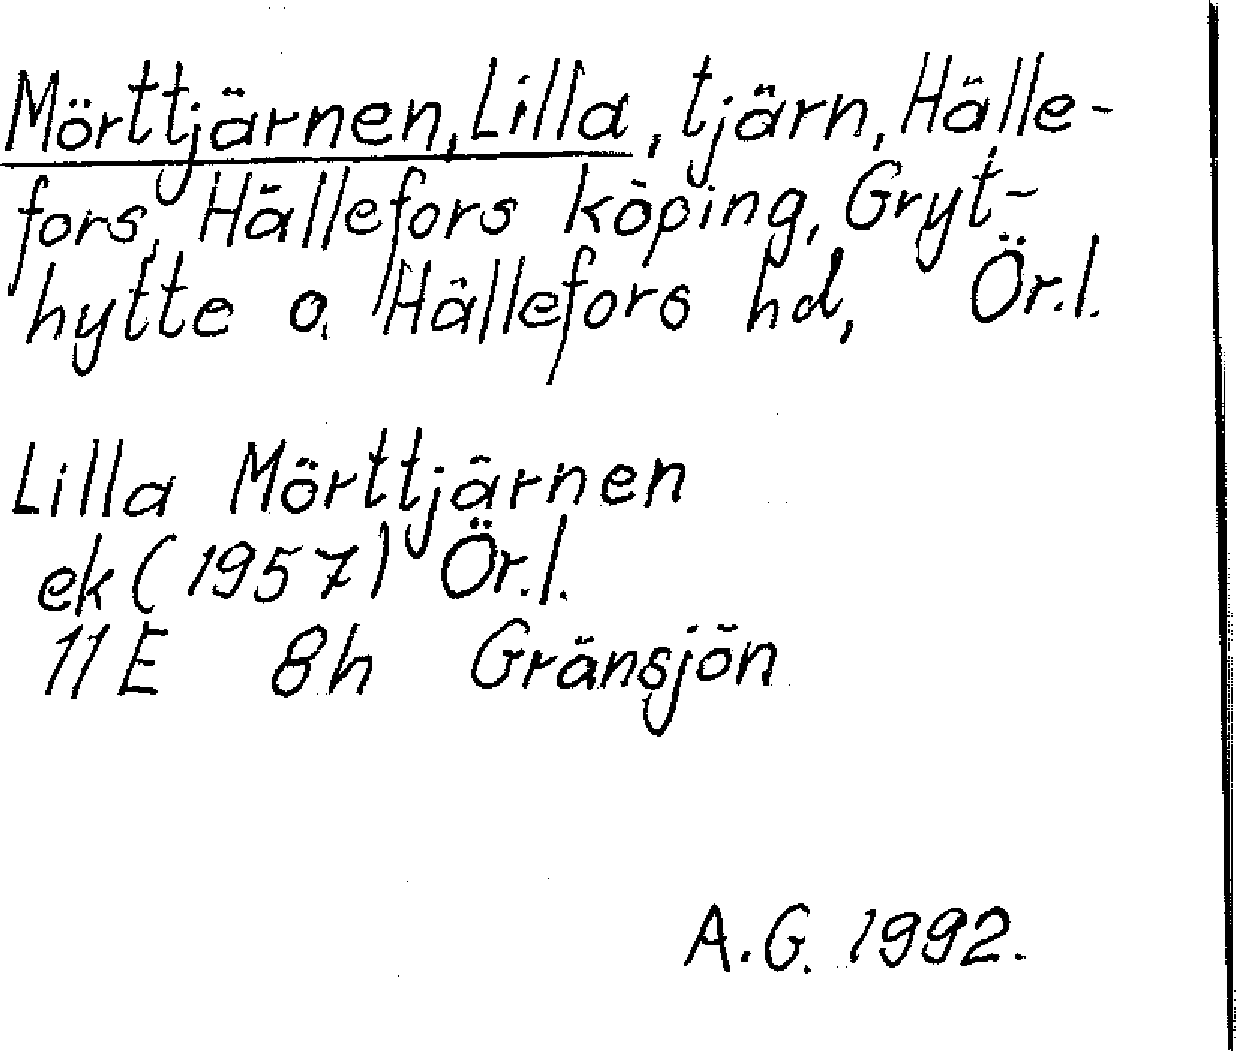 Mörttjärnen, Lilla, tjärn, Hälle-
fors, Hällefors köping, Gryt-
hytte o. Hällefors hd, Ör.l.
Lilla Mörttjärnen
ek (1957) Ör.l.
11E 8h Gränsjön
A.G. 1992.